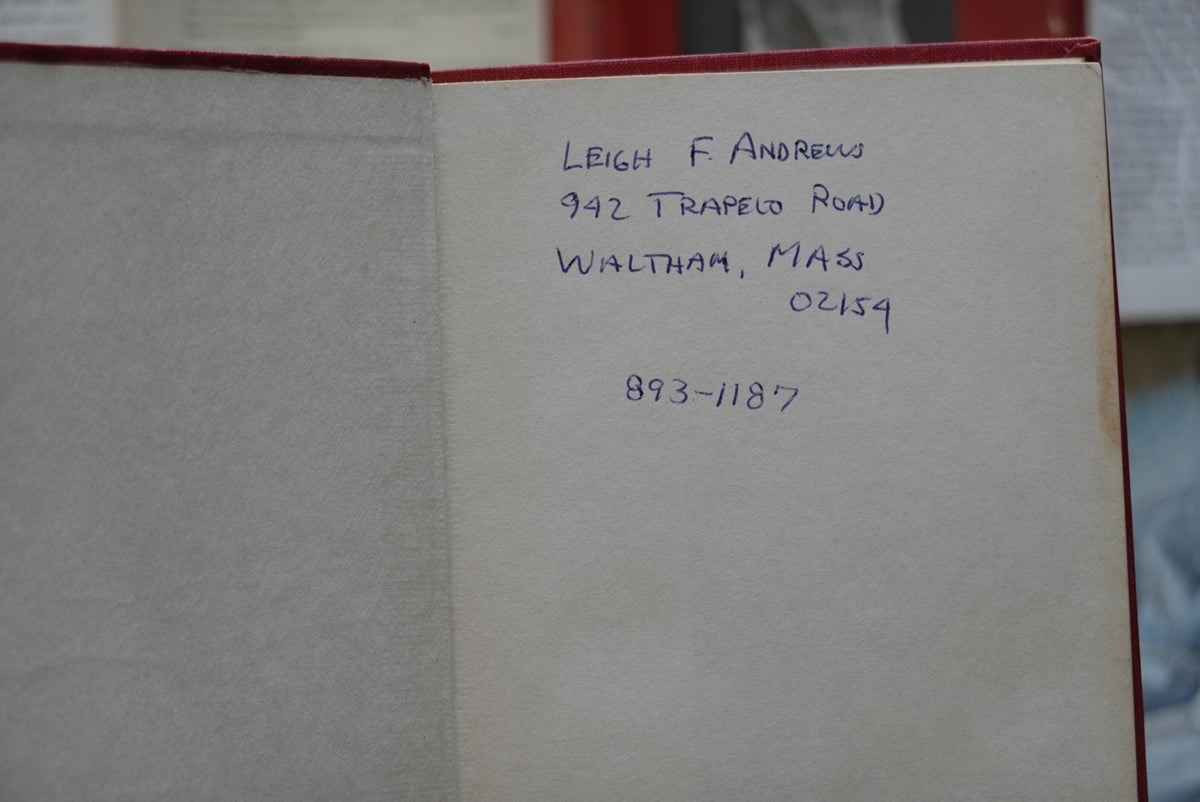 LEIGH F. ANDREWS
942 TRAPELO ROAD
WALTHAM, MASS
02154
893-1187